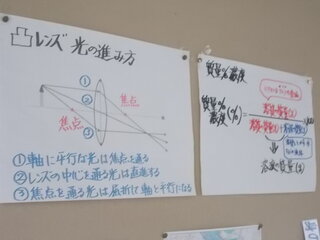 凸レンズ 光の進み方
①
②
③
焦点
焦点
①軸に平行な光は焦点を通る
②レンズの中心を通る光は直進する
③焦点を通る光は屈折して軸と平行になる
質量%濃度
質量%濃度(%)=
溶質の質量(g)
溶質の質量(g)+溶媒の質量(g)
溶液の質量(g)